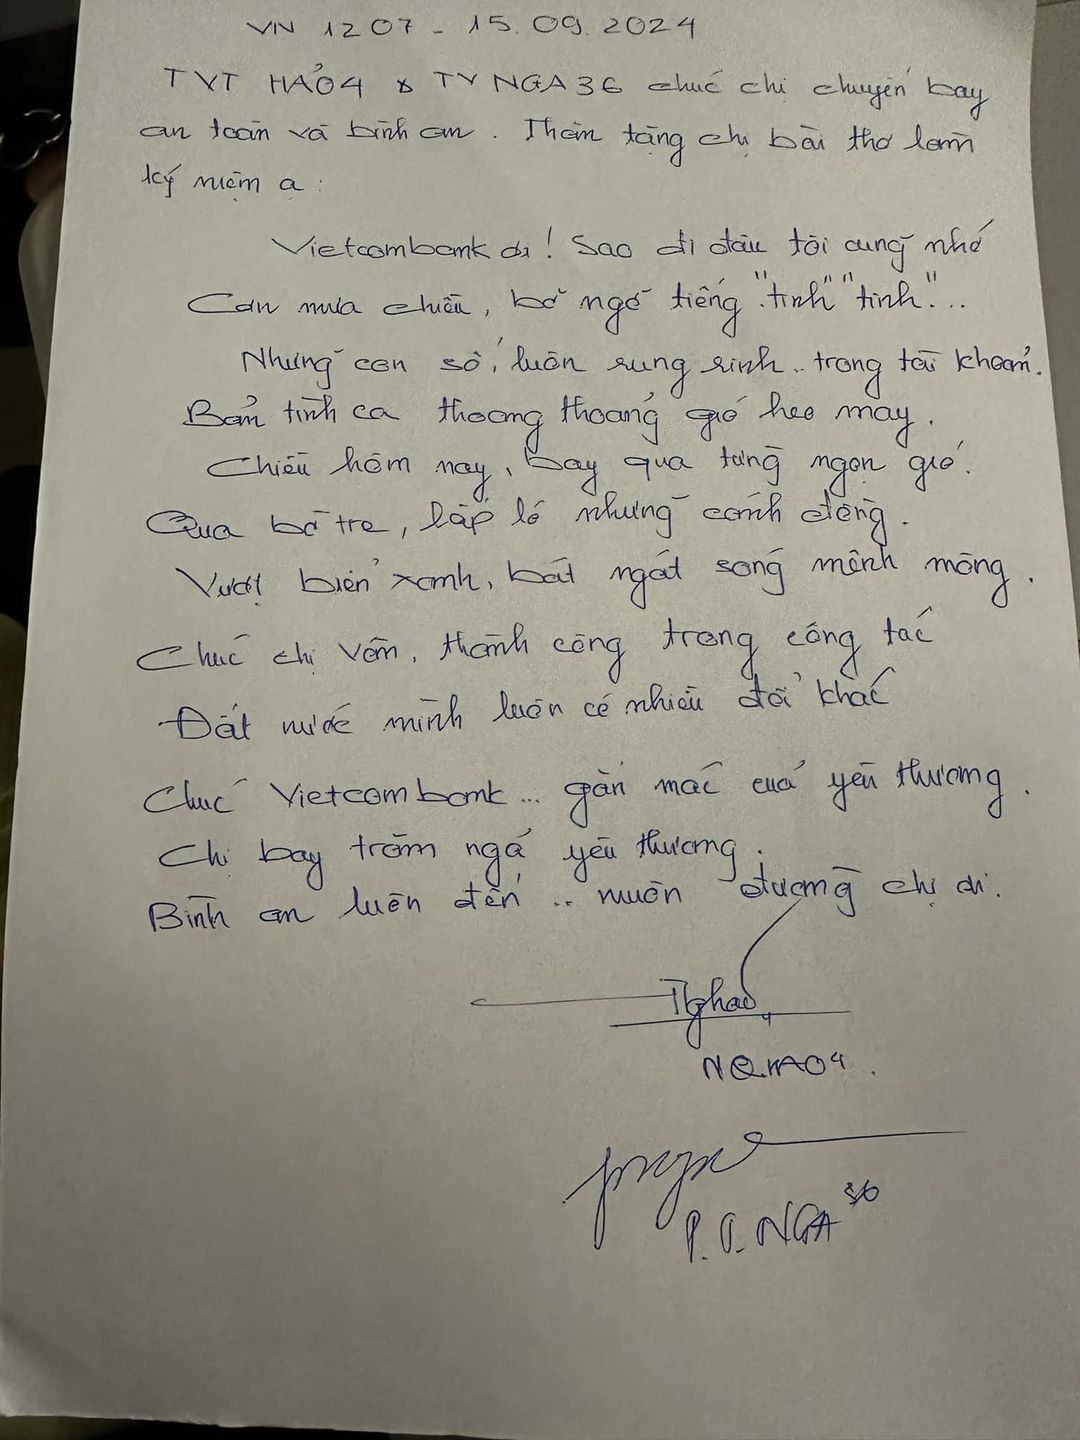 VN 1207 - 15.09.2024
TVT HẢO4 & TV NGA36 chúc chị chuyến bay
an toàn và bình an. Thân tặng chị bài thơ làm
kỷ niệm ạ:
Vietcombank ơi! Sao đi đâu tôi cũng nhớ
Cơn mưa chiều, bỡ ngỡ tiếng "tinh" "tinh"...
Những con số, luôn rung rinh.. trong tài khoản.
Bản tình ca thoang thoảng gió heo may.
Chiều hôm nay, bay qua từng ngọn gió.
Qua bờ tre, lấp ló những cánh đồng.
Vượt biển xanh, bát ngát sóng mênh mông.
Chúc chị Vân, thành công trong công tác
Đất nước mình luôn có nhiều đổi khác
Chúc Vietcombank... gắn mác của yêu thương.
Chị bay trăm ngả yêu thương.
Bình an luôn đến .. muôn đường chị đi.
NQHAO4.
P.T.NGA 36